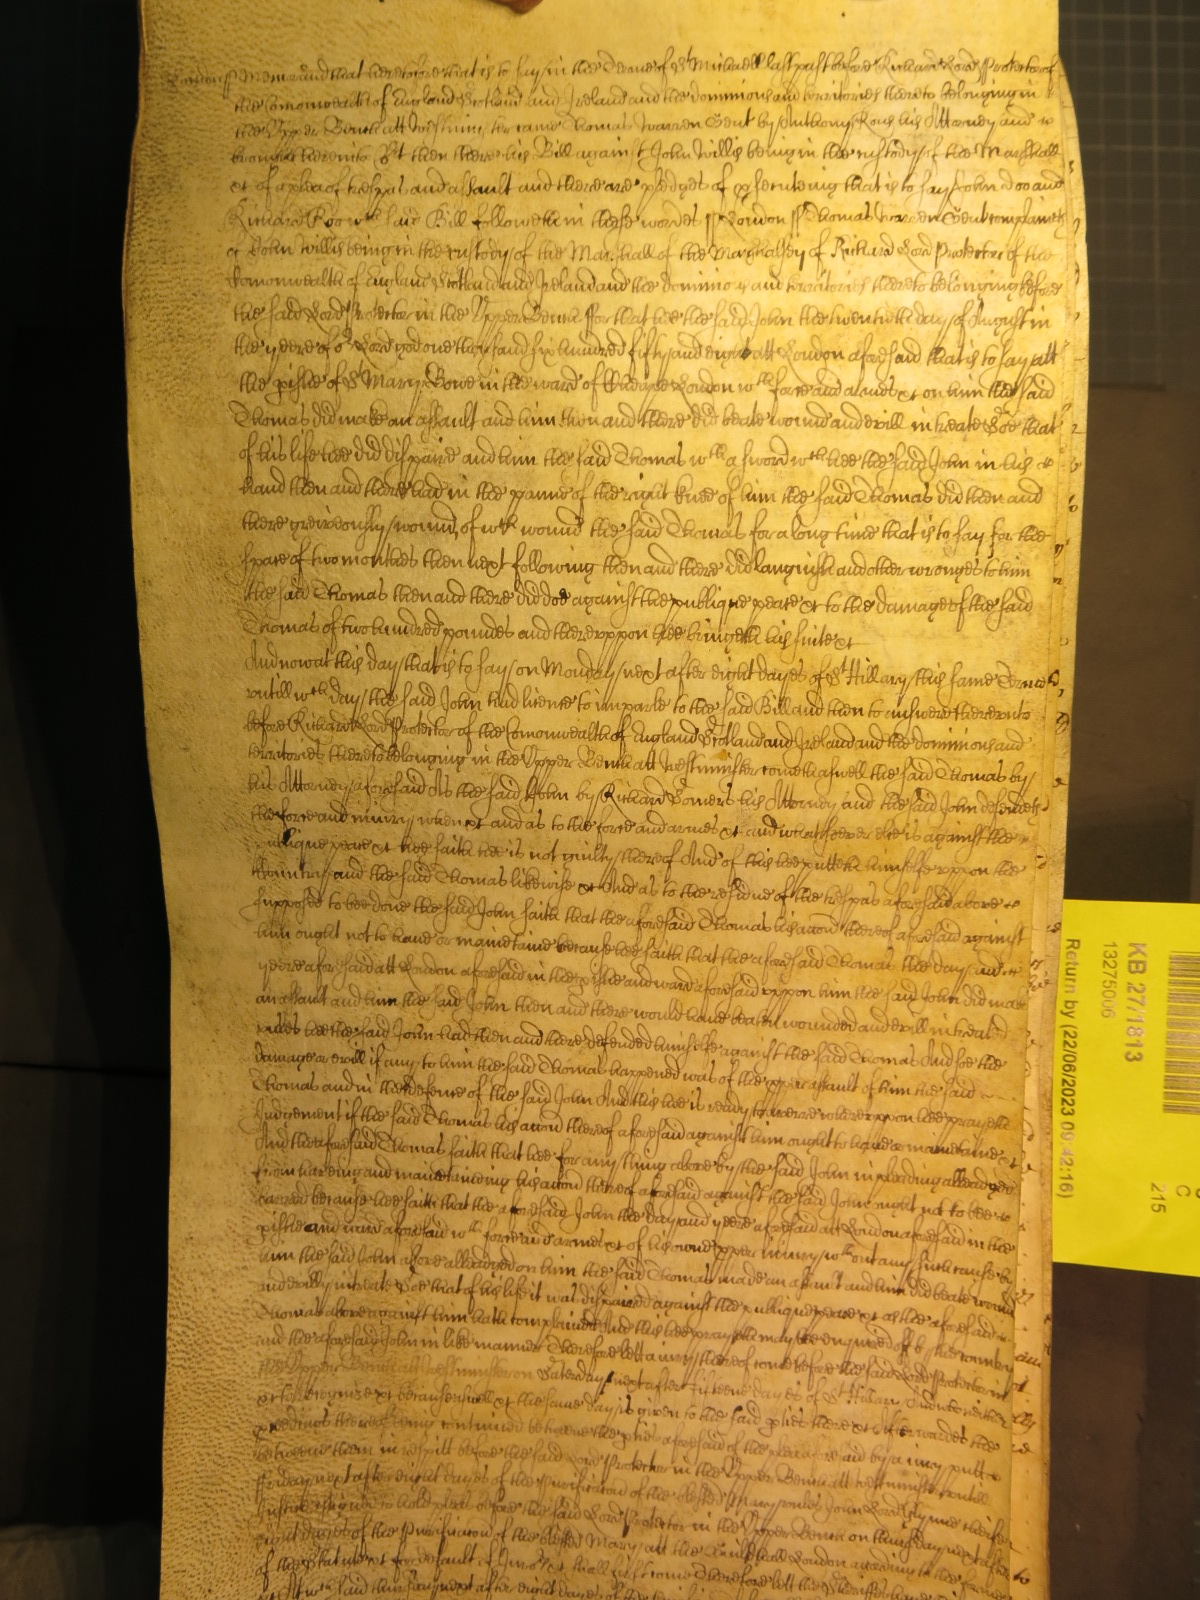 London ss Memorand that heretofore that is to say in the Terme of St Michaell last past before Richard Lord Protector of
the Comonwealth of England Scotland and Ireland and the dominions and territories thereto belonging in
the Upper Bench att Westminster came Thomas Warren Gent by Anthony Rous his Attorney and
brought here into Ct then there his Bill against John Willis being in the custody of the Marshall
&c of a plea of trespas and assault and there are pledges of psecuteing that is to say John Doo and
Richard Roo wch said Bill followeth in these wordes ss London ss Thomas Warren Gent complaineth
of John Willis being in the custody of the Marshall of the Marshalsey of Richard Lord Protector of the
Comonwealth of England Scotland and Ireland and the dominions and territories thereto belonging before
the said Lord Protector in the Upper Bench for that hee the said John the twentith day of August in
the yeere of or Lord god one thousand six hundred fifty and eight att London aforesaid that is to say att
the pishe of St Mary Bowe in the ward of Cheape London wth force and armes &c on him the said
Thomas did make an assault and him then and there did beate wound and evill intreate Soe that
of his life hee did dispaire and him the said Thomas wth a sword wch hee the said John in his
hand then and there had in the panne of the right knee of him the said Thomas did then and
there greivously wound, of wch wound the said Thomas for a long time that is to say for the
space of two monthes then next following then and there did languish and other wronges to him
the said Thomas then and there did doe against the publique peace &c to the damage of the said
Thomas of two hundred poundes and thereuppon hee bringeth his suite &c
And now at this day that is to say on Monday next after eight dayes of St Hillary this same Terme
untill wch day the said John had licence to imparle to the said Bill and then to answere thereunto
before Richard Lord Protector of the Comonwealth of England Scotland and Ireland and the dominions and
territories thereto belonging in the Upper Bench att Westminster cometh aswell the said Thomas by
his Attorney aforesaid As the said John by Richard Somers his Attorney and the said John defendeth
the force and iniury when &c and as to the force and armes &c and whatsoever else is against the
publique peace &c hee saith hee is not guilty thereof And of this hee putteth himselfe uppon the
Country and the said Thomas likewise &c And as to the residue of the trespas aforesaid above
supposed to bee done the said John saith that the aforesaid Thomas his accon thereof aforesaid against
him ought not to have or mainetaine because hee saith that the aforesaid Thomas the day and
yeere aforesaid att London aforesaid in the pishe and ward aforesaid uppon him the said John did make
an assault and him the said John then and there would have beaten wounded and evill intreated
unles hee the said John had then and there defended himselfe against the said Thomas And soe the
damage or evill if any to him the said Thomas happened was of the pper assault of him the said
Thomas and in the defence of the said John And this hee is ready to averre whereuppon hee prayeth
Judgement if the said Thomas his accon thereof aforesaid against him ought to have or mainetaine &c
And the aforesaid Thomas saith that hee for any thing above by the said John in pleading alleadged
from haveing and mainetaineing his accon thereof aforesaid against the said John ought not to bee
barred because hee saith that the aforesaid John the day and yeere aforesaid att London aforesaid in the
pishe and ward aforesaid wth force and armes &c of his owne pper iniury wthout any such cause by
him the said John above alleadged on him the said Thomas made an assault and him did beate wound
and evilly intreate Soe that of his life it was dispaired against the publique peace &c as the aforesaid
Thomas above against him hath complained And this hee prayeth may bee enquired of by the Country
and the aforesaid John in like manner Therefore lett a iury thereof come before the said Lord Protector in
the Upper Bench att Westminster on Saterday next after fifteene dayes of St Hillary And who neither
&c to recognize &c because aswell &c the same day is given to the said pties there &c Afterwardes the
pceedings thereof being continued betweene the pties aforesaid of the plea aforesaid by a iury putt
betweene them in respitt before the said Lord Protector in the Upper Bench att Westminster untill
Friday next after eight dayes of the Purificacon of the blessed Mary unles John Lord Glynne cheife
Justice assigned to hold pleas before the said Lord Protector in the Upper Bench on thursday next after
eight dayes of the Purificacon of the blessed Mary att the Guildhall London according to the forme
of the Statute &c for default of Juro &c shall first come Therefore lett the Sheriffes have
next after eight dayes of
KB 27/1813
13275006
Return by (22/06/2023 09:42:16)
C
215